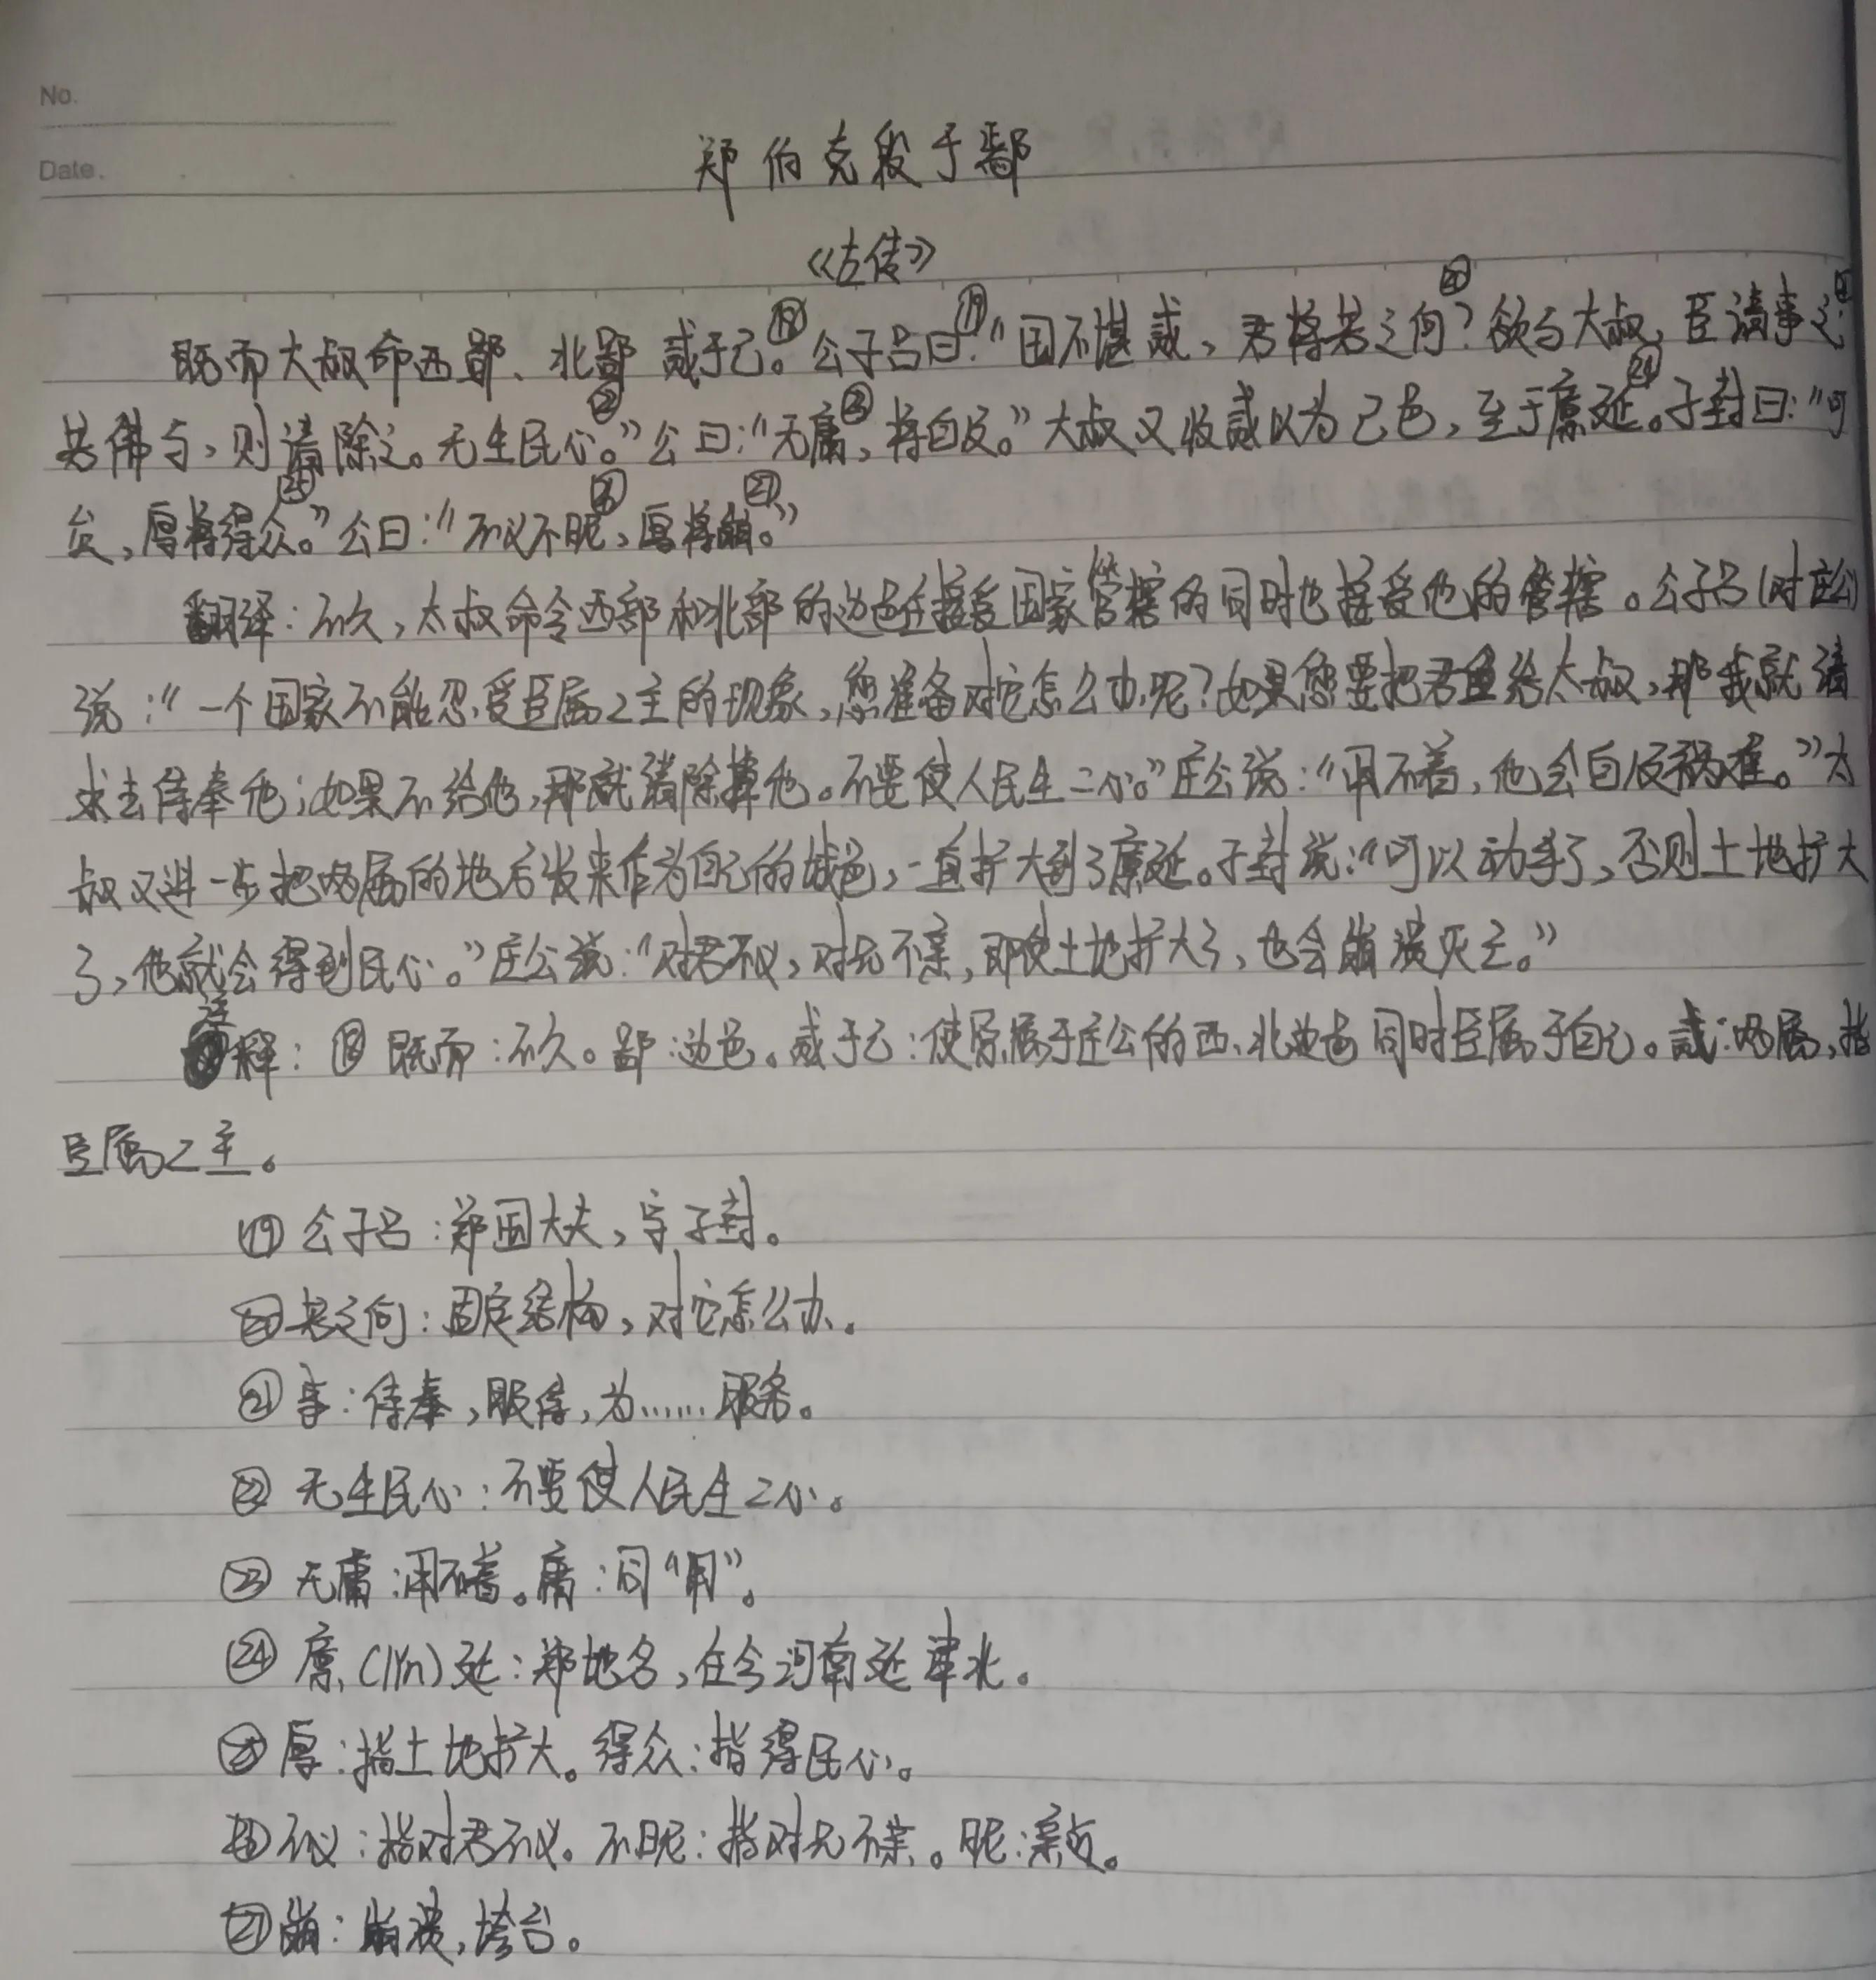 No.
Date.
郑伯克段于鄢
《左传》
既而大叔命西鄙、北鄙贰于己。⑱公子吕曰⑲:“国不堪贰,君将若之何⑳?欲与大叔,臣请事之㉑;
若弗与,则请除之。无生民心㉒。”公曰:“无庸㉓,将自及。”大叔又收贰以为己邑,至于廪延㉔。子封曰:“可
矣,厚将得众㉕。”公曰:“不义不昵㉖,厚将崩㉗。”
翻译:不久,太叔命令西部和北部的边邑在接受国家管辖的同时也接受他的管辖。公子吕(对庄公)
说:“一个国家不能忍受臣属二主的现象,您准备对它怎么办呢?如果您要把君位给太叔,那我就请
求去侍奉他;如果不给他,那就清除掉他。不要使人民生二心。”庄公说:“用不着,他会自及祸难。”太
叔又进一步把两属的地方收来作为自己的城邑,一直扩大到了廪延。子封说:“可以动手了,否则土地扩大
了,他就会得到民心。”庄公说:“对君不义,对兄不亲,即使土地扩大了,也会崩溃灭亡。”
注释:⑱既而:不久。鄙:边邑。贰于己:使原属于庄公的西、北边邑同时臣属于自己。贰:两属,指
臣属二主。
⑲公子吕:郑国大夫,字子封。
⑳若之何:固定结构,对它怎么办。
㉑事:侍奉,服侍,为……服务。
㉒无生民心:不要使人民生二心。
㉓无庸:用不着。庸:同“用”。
㉔廪(lǐn)延:郑地名,在今河南延津北。
㉕厚:指土地扩大。得众:指得民心。
㉖不义:指对君不义。不昵:指对兄不亲。昵:亲近。
㉗崩:崩溃,垮台。